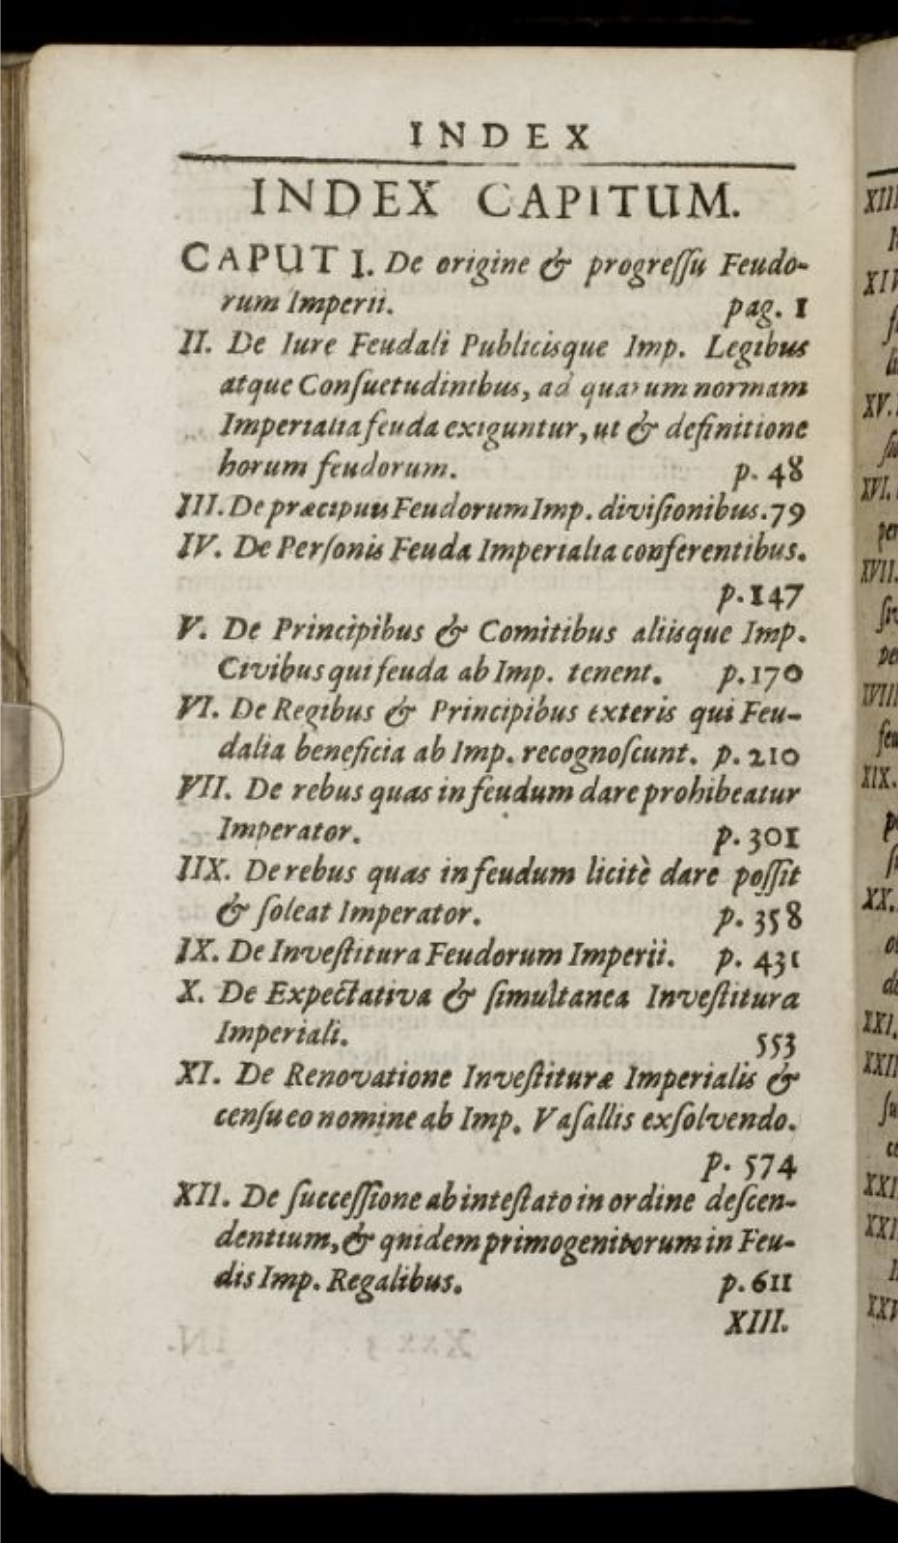 INDEX
INDEX CAPITUM.
CAPUT I. De origine & progreſſu Feudo-
rum Imperii. pag. 1
II. De Iure Feudali Publicisque Imp. Legibus
atque Conſuetudinibus, ad quarum normam
Imperialia feuda exiguntur, ut & definitione
horum feudorum. p. 48
III. De præcipuis Feudorum Imp. diviſionibus. 79
IV. De Perſonis Feuda Imperialia conferentibus.
p. 147
V. De Principibus & Comitibus aliisque Imp.
Civibus qui feuda ab Imp. tenent. p. 170
VI. De Regibus & Principibus exteris qui Feu-
dalia beneficia ab Imp. recognoſcunt. p. 210
VII. De rebus quas in feudum dare prohibeatur
Imperator. p. 301
IIX. De rebus quas in feudum licitè dare poſſit
& ſoleat Imperator. p. 358
IX. De Inveſtitura Feudorum Imperii. p. 431
X. De Expectativa & ſimultanea Inveſtitura
Imperiali. 553
XI. De Renovatione Inveſtituræ Imperialis &
cenſu eo nomine ab Imp. Vaſallis exſolvendo.
p. 574
XII. De ſucceſſione ab inteſtato in ordine deſcen-
dentium, & quidem primogenitorum in Feu-
dis Imp. Regalibus. p. 611
XIII.